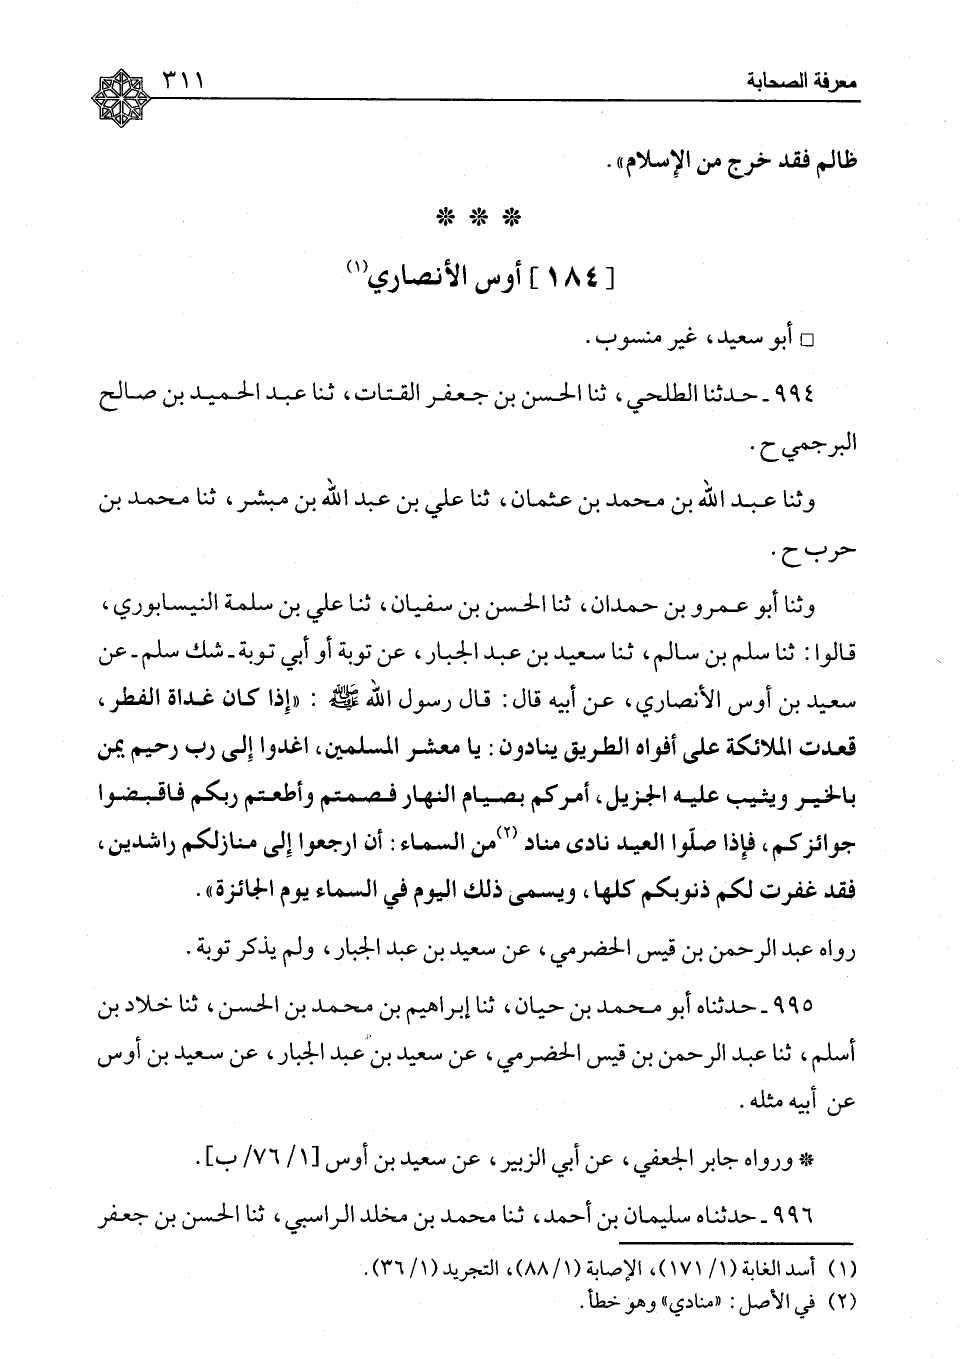 معرفة الصحابة ٣١١
ظالم فقد خرج من الإسلام» .
* * *
[١٨٤] أوس الأنصاري(١)
□ أبو سعيد، غير منسوب .
٩٩٤ ـ حدثنا الطلحي، ثنا الحسن بن جعفر القتات، ثنا عبد الحميد بن صالح
البرجمي ح .
وثنا عبد الله بن محمد بن عثمان، ثنا علي بن عبد الله بن مبشر، ثنا محمد بن
حرب ح .
وثنا أبو عمرو بن حمدان، ثنا الحسن بن سفيان، ثنا علي بن سلمة النيسابوري،
قالوا: ثنا سلم بن سالم، ثنا سعيد بن عبد الجبار، عن توبة أو أبي توبة ـ شك سلم ـ عن
سعيد بن أوس الأنصاري، عن أبيه قال: قال رسول الله ﷺ : «إذا كان غداة الفطر،
قعدت الملائكة على أفواه الطريق ينادون: يا معشر المسلمين، اغدوا إلى رب رحيم يمن
بالخير ويثيب عليه الجزيل، أمركم بصيام النهار فصمتم وأطعتم ربكم فاقبضوا
جوائزكم، فإذا صلّوا العيد نادى مناد(٢) من السماء: أن ارجعوا إلى منازلكم راشدين،
فقد غفرت لكم ذنوبكم كلها، ويسمى ذلك اليوم في السماء يوم الجائزة» .
رواه عبد الرحمن بن قيس الحضرمي، عن سعيد بن عبد الجبار، ولم يذكر توبة .
٩٩٥ ـ حدثناه أبو محمد بن حيان، ثنا إبراهيم بن محمد بن الحسن، ثنا خلاد بن
أسلم، ثنا عبد الرحمن بن قيس الحضرمي، عن سعيد بن عبد الجبار، عن سعيد بن أوس
عن أبيه مثله .
* ورواه جابر الجعفي، عن أبي الزبير، عن سعيد بن أوس [١/ ٧٦/ ب] .
٩٩٦ ـ حدثناه سليمان بن أحمد، ثنا محمد بن مخلد الراسبي، ثنا الحسن بن جعفر
(١) أسد الغابة (١/ ١٧١)، الإصابة (١/ ٨٨)، التجريد (١/ ٣٦).
(٢) في الأصل: «منادي» وهو خطأ.